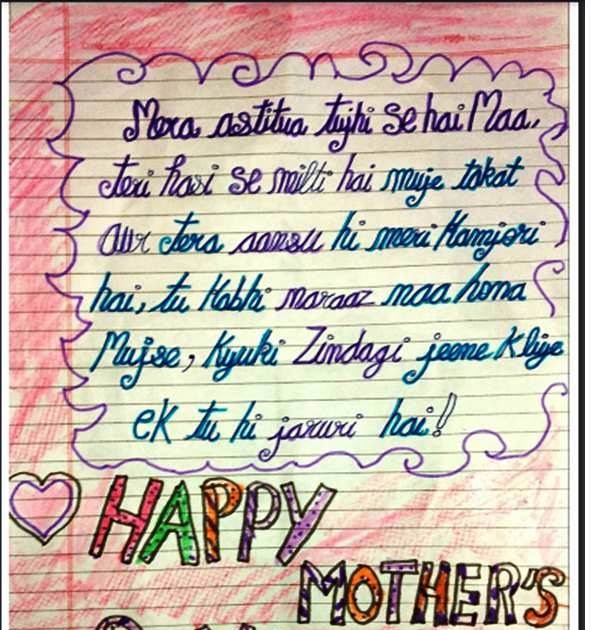 Mera astitua tujhi se hai Maa.
teri hasi se milti hai muje takat
aur tera aansu hi meri Kamjori
hai, tu Kabhi naraaz naa hona
Mujse, Kyuki Zindagi jeene k liye
ek tu hi jaruri hai!
HAPPY
MOTHER'S